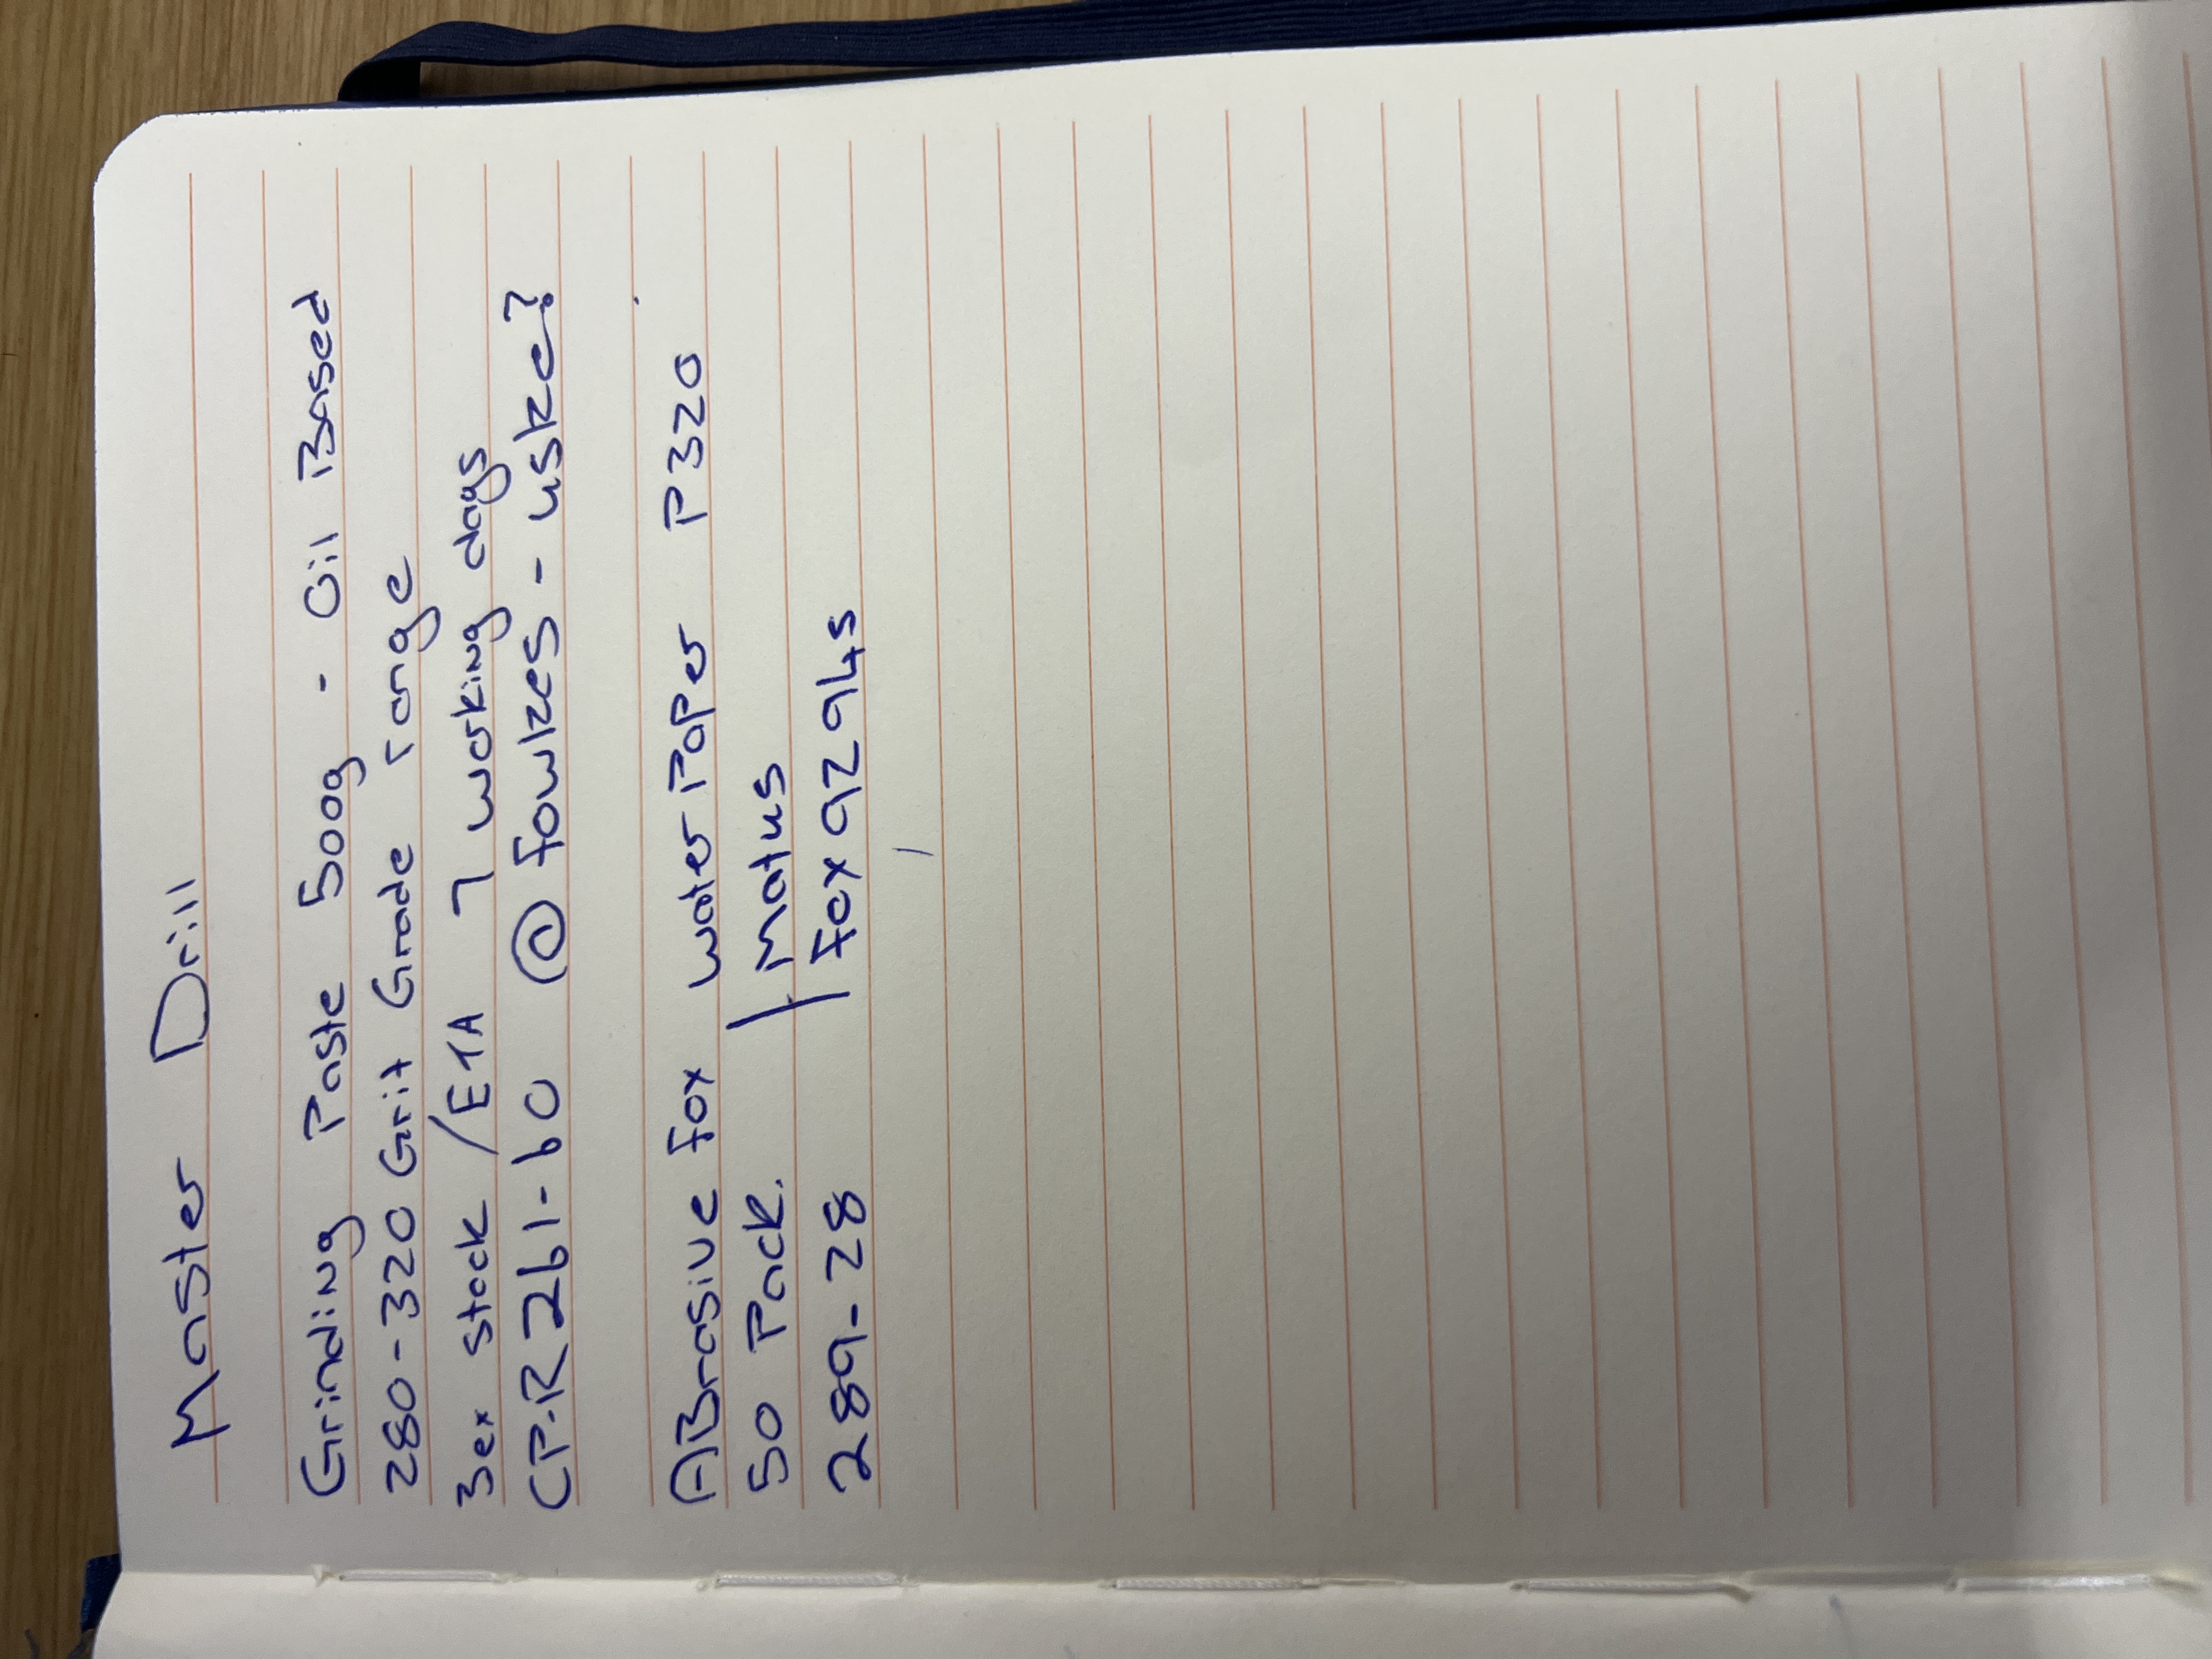 Master Drill
Grinding Paste 500g - Oil Based
280-320 Grit Grade range
3ex stock / ETA 7 working days
CP-R261-60 @ Fowkes - uske?
ABrasive Fox water PaPer P320
50 Pack. | Matus
289-28 | Fox 92 94s